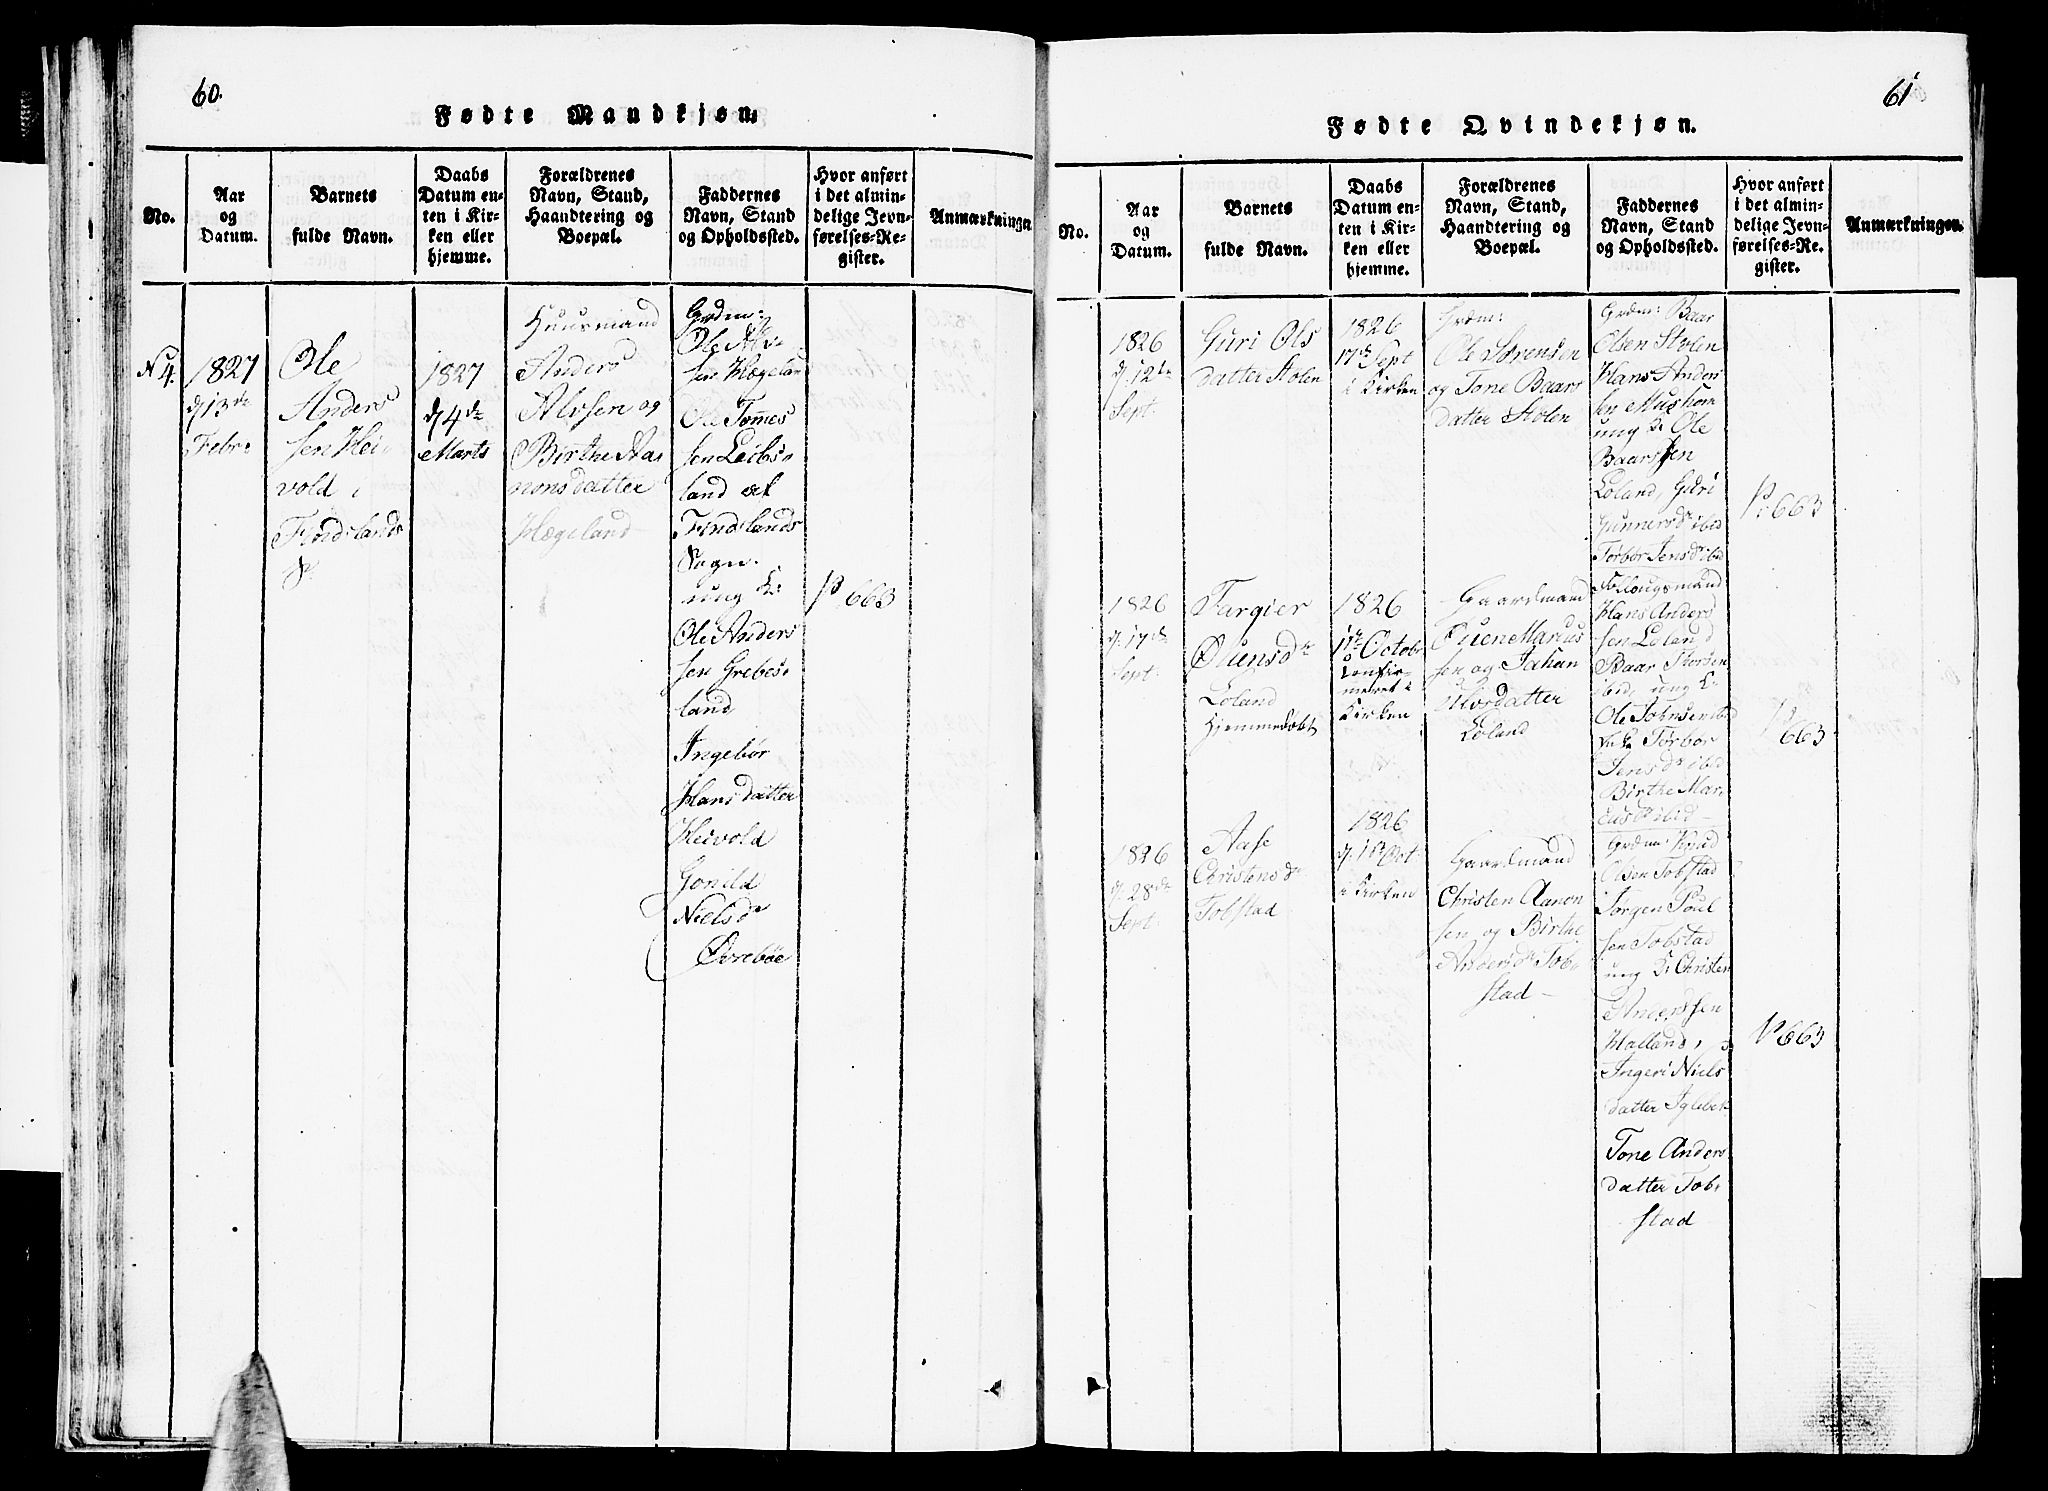 60.
Fødte Mandkjøn.
No.
Aar
og
Datum.
Barnets
fulde Navn.
Daabs
Datum en-
ten i Kir-
ken eller
hjemme.
Forældrenes
Navn, Stand,
Haandtering og
Boepæl.
Faddernes
Navn, Stand
og Opholdssted.
Hvor anført
i det almin-
delige Jevn-
førelses-Re-
gister.
Anmærkninger.
N 4.
1827
d 13de
Febr.
Ole
Anders
sen Hei
vold i
Findslands
S.
1827
d 4de
Marts
Huusmand
Anders
Alvsen og
Birthe Aa
nonsdatter
Hægeland
Grdm:
Ole Alv
sen Hægelan
Ole Tommes
sen Leibs
land af
Findslands
Sogn.
ung K:
Ole Anders
sen Grebes
land
Ingebør
Hansdatter
Heivold
Gonild
Nielsdr
Øvrebøe
P 663
61
Fødte Qvindekjøn.
No.
Aar
og
Datum.
Barnets
fulde Navn.
Daabs
Datum en-
ten i Kir-
ken eller
hjemme.
Forældrenes
Navn, Stand,
Haandtering og
Boepæl.
Faddernes
Navn, Stand
og Opholdssted.
Hvor anført
i det almin-
delige Jevn-
førelses-Re-
gister.
Anmærkninger.
1826
d. 12te
Sept.
Guri Ols
datter Stolen
1826
17de Sept
i Kirken
Grdm:
Ole Sørensen
og Tone Baars
datter Stolen
Grdm: Baar
Olsen Stolen
Hans Anders
sen
ung K: Ole
Baarssen
Loland, Guri
Gunnersdr ibid
Torbor Jensdr ibid
P: 663
1826
d. 17de
Sept.
Targier
Øuensdr
Loland
Hjemmedøbt
1826
1te Octobr
confir-
meret i
Kirken
Gaardmand
Øuen Marcus
sen og Johan
datter
Loland
Føllougsmand
Hans Anders
sen Loland
Baar
ibid, ung K.
Ole ibid
Torbor
Jensdr ibid
Birthe Mar
cusdr ibid
P 663
1826
d. 28de
Sept.
Aase
Christensdr
Tobstad
1826
d. Oct.
i Kirken
Gaardmand
Christen Aanon
sen og Birthe
Andersdr Tob
stad
Grdm: Knud
Olsen Tobstad
Jørgen Poul
sen Tobstad
ung K: Christen
Anderssen
Halland,
Ingeri Niels
datter Iglebek
Tone Anders
datter Tob
stad
P 663